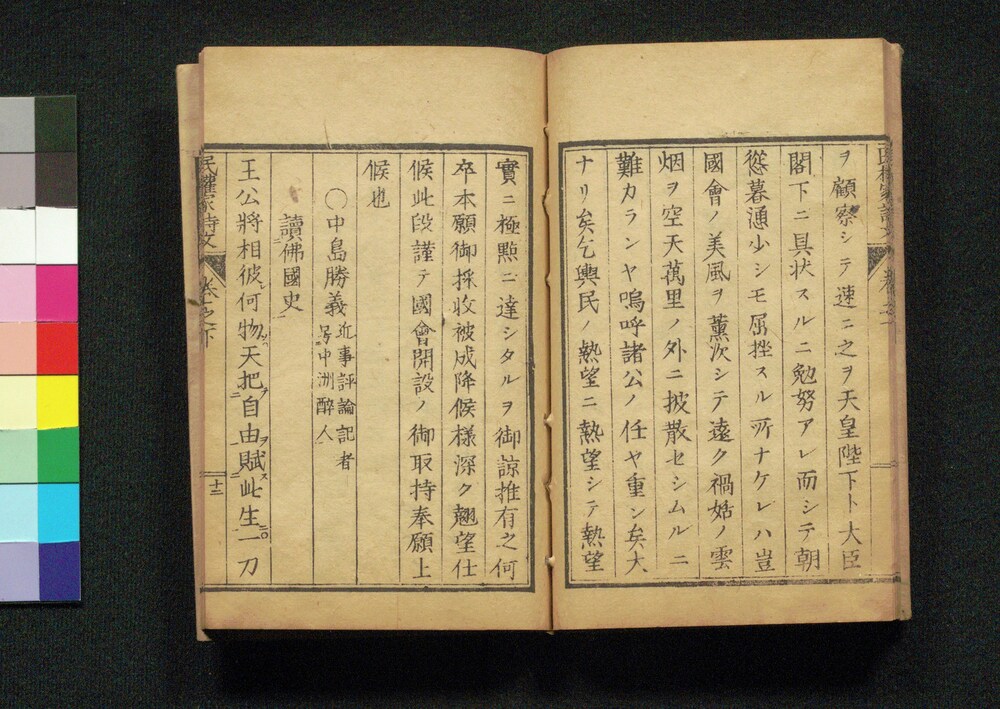 ヲ顧察シテ速ニ之ヲ天皇陛下ト大臣
閣下ニ具状スルニ勉努アレ而シテ朝
慫暮慂少シモ屈挫スル所ナケレハ豈
國會ノ美風ヲ薫次シテ遠ク禍姤ノ雲
烟ヲ空天萬里ノ外ニ披散セシムルニ
難カランヤ嗚呼諸公ノ任ヤ重ン矣大
ナリ矣乞輿民ノ熱望ニ熱望シテ熱望
實ニ極點ニ達シタルヲ御諒推有之何
卒本願御採收被成降候様深ク翹望仕
候此段謹テ國會開設ノ御取持奉願上
候也
〇中島勝義近事評論記者
号中洲醉人
讀佛國史
王公將相彼何物天把自由賦此生一刀
民權家詩文
卷之下
十二